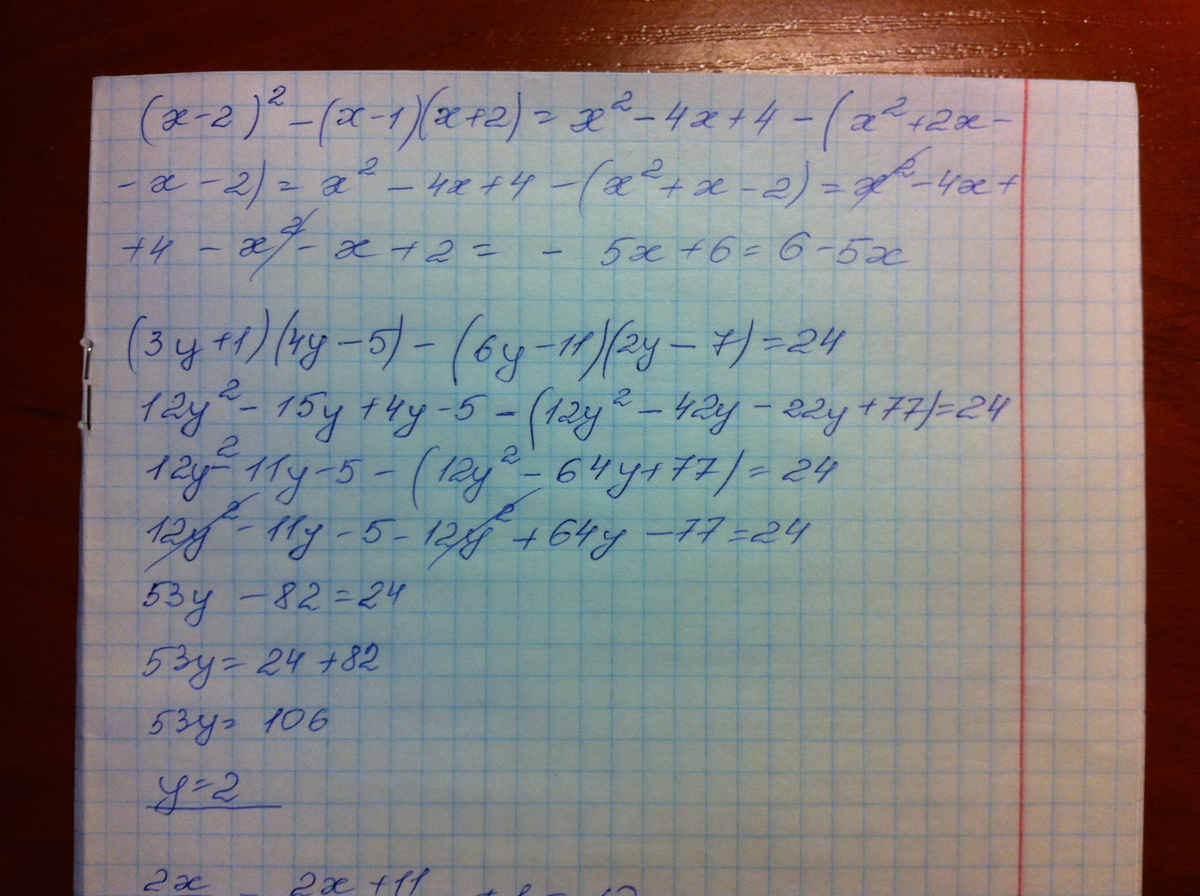 (x-2)² - (x-1)(x+2) = x² - 4x + 4 - (x² + 2x -
- x - 2) = x² - 4x + 4 - (x² + x - 2) = x² - 4x +
+ 4 - x² - x + 2 = - 5x + 6 = 6 - 5x
(3y+1)(4y-5) - (6y-11)(2y-7) = 24
12y² - 15y + 4y - 5 - (12y² - 42y - 22y + 77) = 24
12y² - 11y - 5 - (12y² - 64y + 77) = 24
12y² - 11y - 5 - 12y² + 64y - 77 = 24
53y - 82 = 24
53y = 24 + 82
53y = 106
y = 2
2x - 2x + 11